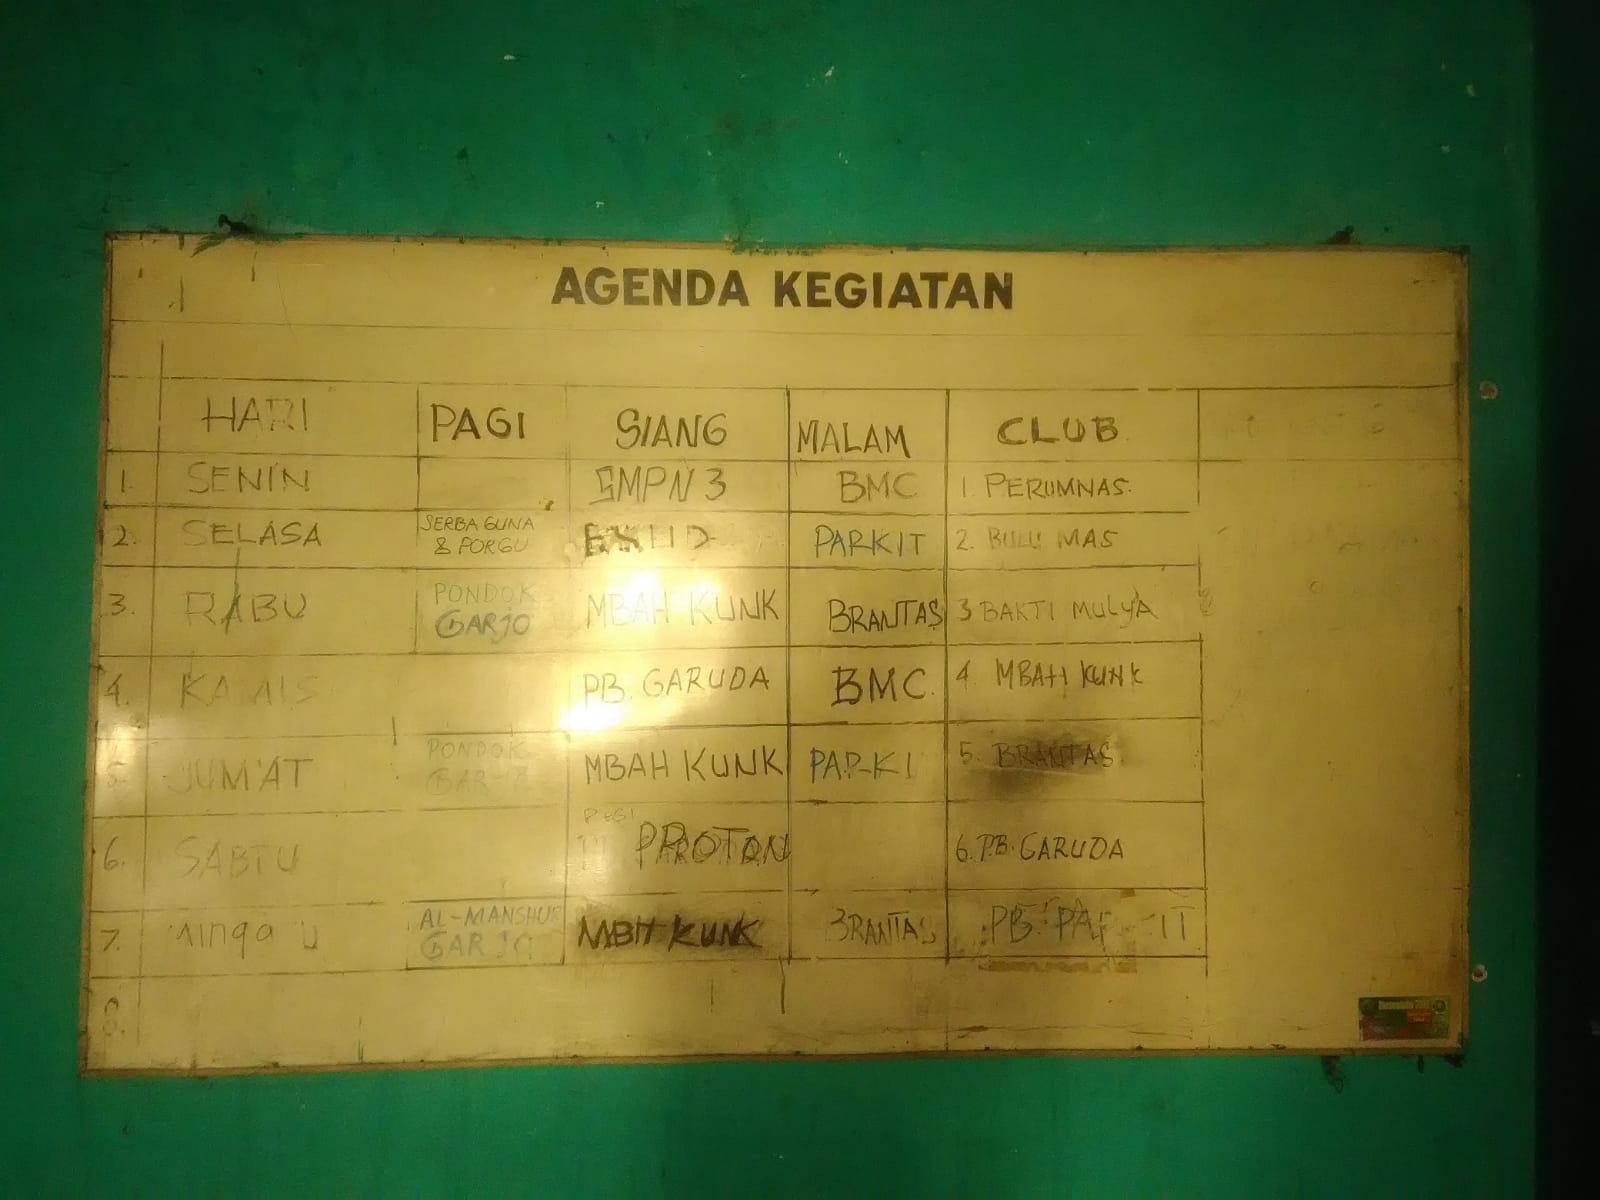 AGENDA KEGIATAN
HARI PAGI SIANG MALAM CLUB
1. SENIN SMPN 3 BMC 1 PERUMNAS.
2. SELASA SERBA GUNA
& PORGU PARKIT 2. BULU MAS
3. RABU PONDOK
GARJO MBAH KUNK BRANTAS 3 BAKTI MULYA
4. KAMIS PB. GARUDA BMC. 4 MBAH KUNK
5. JUM'AT PONDOK
MBAH KUNK PARKI 5. BRANTAS
6. SABTU PAGI
PROTON 6. P.B. GARUDA
7. AL-MANSHUR
GARJO MBH KUNK BRANTAS PB.
8.